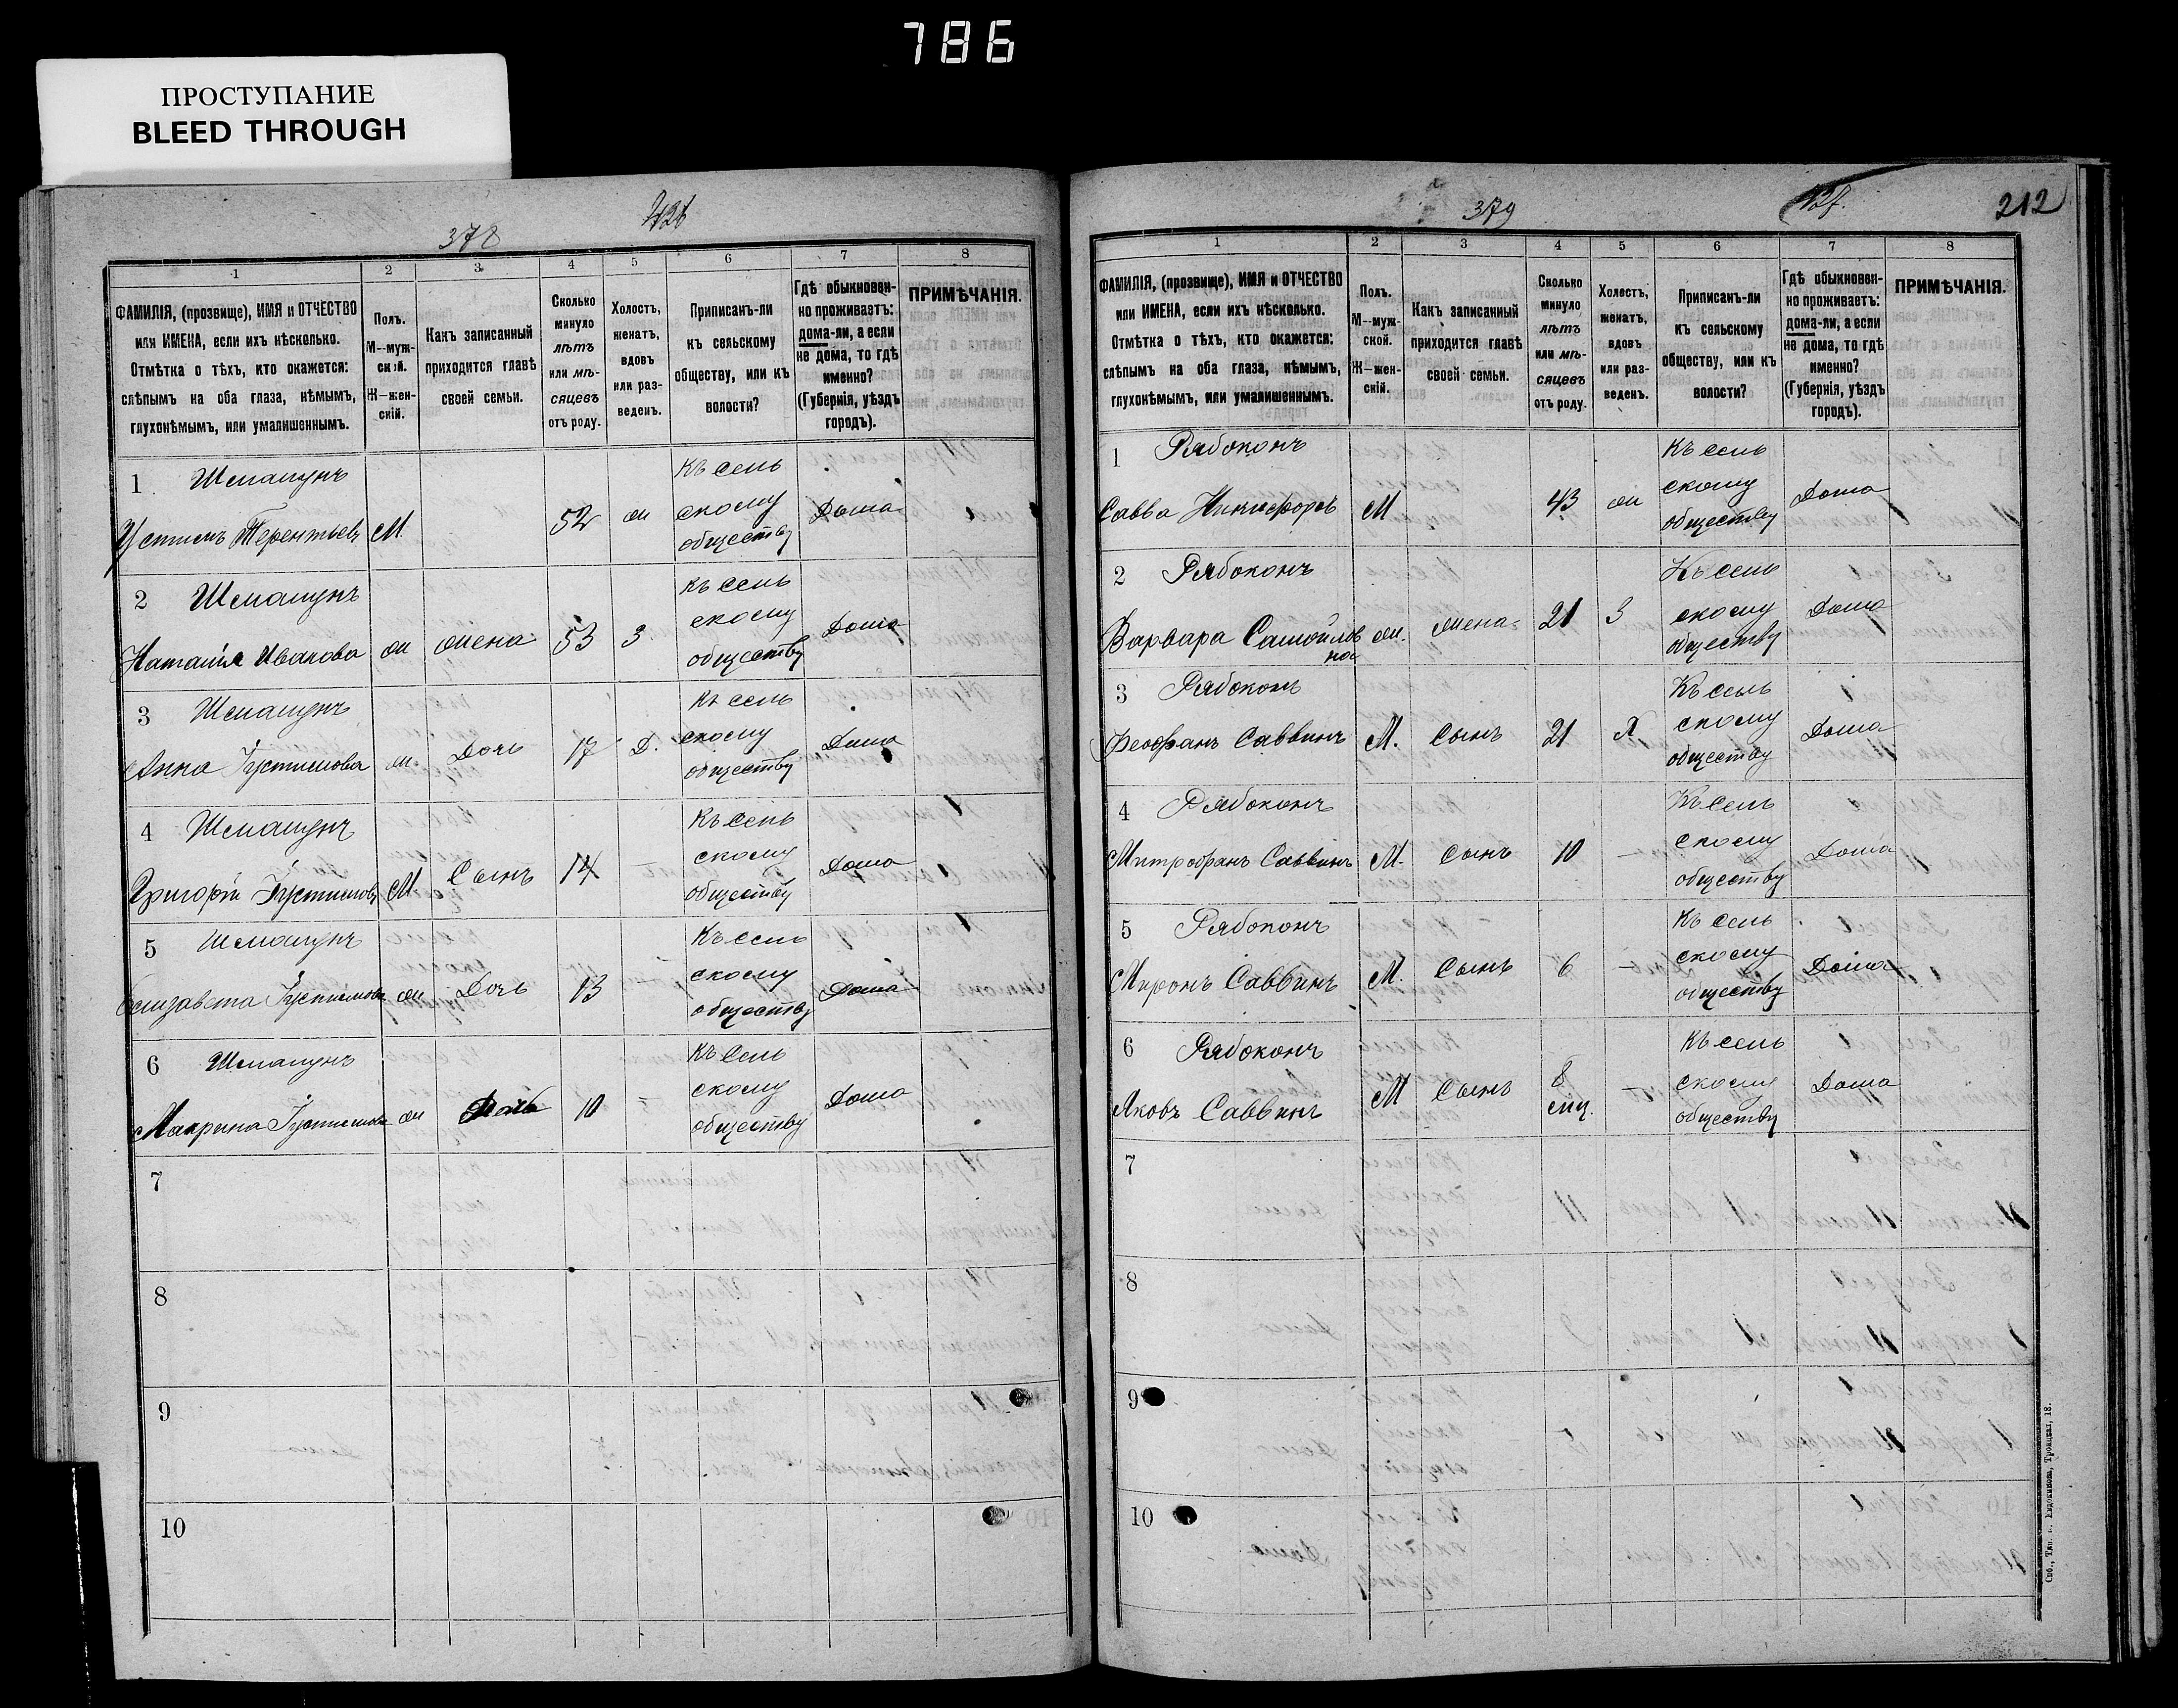 786
ПРОСТУПАНИЕ
BLEED THROUGH
378
426
1 2 3 4 5 6 7 8
ФАМИЛІЯ, (прозвище), ИМЯ и ОТЧЕСТВО
или ИМЕНА, если ихъ нѣсколько.
Отмѣтка о тѣхъ, кто окажется:
слѣпымъ на оба глаза, нѣмымъ,
глухонѣмымъ, или умалишеннымъ.
Полъ.
М—муж-
ской.
Ж—жен-
скій.
Какъ записанный
приходится главѣ
своей семьи.
Сколько
минуло
лѣтъ
или мѣ-
сяцевъ
отъ роду.
Холостъ,
женатъ,
вдовъ
или раз-
веденъ.
Приписанъ-ли
къ сельскому
обществу, или къ
волости?
Гдѣ обыкновен-
но проживаетъ:
дома-ли, а если
не дома, то гдѣ
именно?
(Губернія, уѣздъ
городъ).
ПРИМѢЧАНІЯ.
1 Шемашунъ къ сель
Устимъ Терентьевъ М. 52 ж скому Дома
обществу
2 Шемашунъ къ сель
Наталія Иванова ж жена 53 З. скому Дома
обществу
3 Шемашунъ къ сель
Анна Іустимова ж. Дочь 17 Д. скому Дома
обществу
4 Шемашунъ къ сель
Григорій Іустимовъ М. Сынъ 14 — скому Дома
обществу
5 Шемашунъ къ сель
Елизавета Іустимова ж Дочь 13 — скому Дома
обществу
6 Шемашунъ къ сель
Макрина Іустимова ж Дочь 10 – скому Дома
обществу
7
8
9
10
379
427.
212
1 2 3 4 5 6 7 8
ФАМИЛІЯ, (прозвище), ИМЯ и ОТЧЕСТВО
или ИМЕНА, если ихъ нѣсколько.
Отмѣтка о тѣхъ, кто окажется:
слѣпымъ на оба глаза, нѣмымъ,
глухонѣмымъ, или умалишеннымъ.
Полъ.
М—муж-
ской.
Ж—жен-
скій.
Какъ записанный
приходится главѣ
своей семьи.
Сколько
минуло
лѣтъ
или мѣ-
сяцевъ
отъ роду.
Холостъ,
женатъ,
вдовъ
или раз-
веденъ.
Приписанъ-ли
къ сельскому
обществу, или къ
волости?
Гдѣ обыкновен-
но проживаетъ:
дома-ли, а если
не дома, то гдѣ
именно?
(Губернія, уѣздъ
городъ).
ПРИМѢЧАНІЯ.
1 Рябоконъ къ сель
Савва Никифоровъ М 43 ж скому Дома
обществу
2 Рябоконъ къ сель
Варвара Самойлов ж. жена 21 З скому Дома
на обществу
3 Рябоконъ къ сель
Феофанъ Саввинъ М. Сынъ 21 Х скому Дома
обществу
4 Рябоконъ къ сель
Митрофанъ Саввинъ М. Сынъ 10 — скому Дома
обществу
5 Рябоконъ къ сель
Миронъ Саввинъ М. Сынъ 6 — скому Дома
обществу
6 Рябоконъ къ сель
Яковъ Саввинъ М Сынъ 8 — скому Дома
мц. обществу
7
8
9
10
Спб., Тип. Евдокимова, Троицкая, 18.